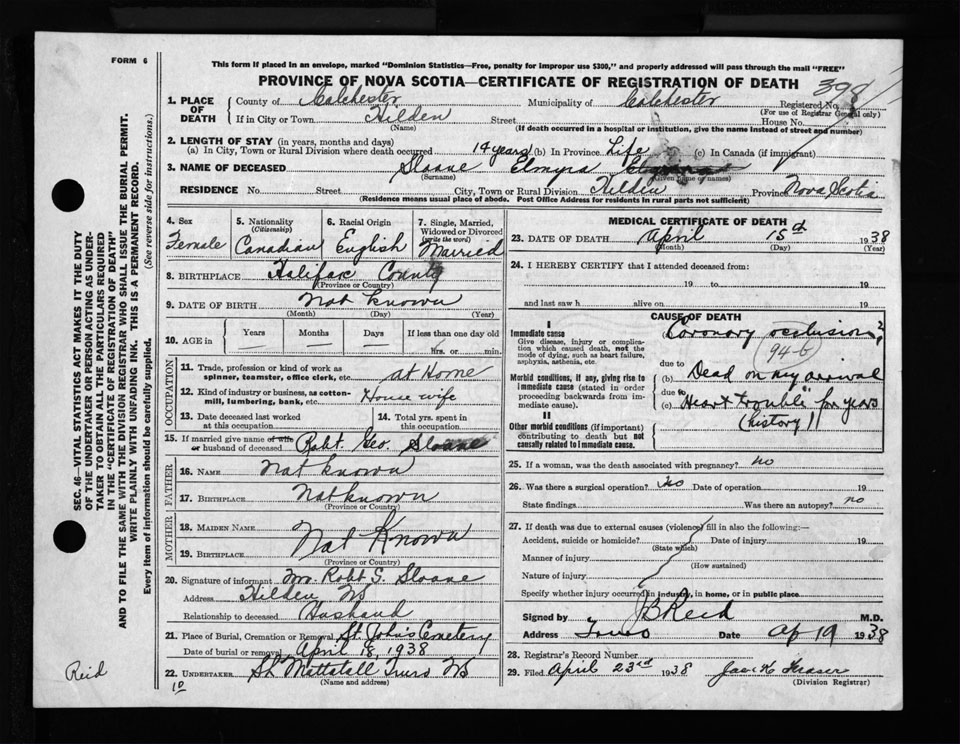 FORM 6
This form if placed in an envelope, marked "Dominion Statistics—Free, penalty for improper use $300," and properly addressed will pass through the mail "FREE"
PROVINCE OF NOVA SCOTIA—CERTIFICATE OF REGISTRATION OF DEATH
398
1. PLACE OF DEATH
County of Colchester Municipality of Colchester Registered No.
(For use of Registrar General only)
If in City or Town Hilden Street House No.
(Name) (If death occurred in a hospital or institution, give the name instead of street and number)
2. LENGTH OF STAY (in years, months and days)
(a) In City, Town or Rural Division where death occurred 14 years (b) In Province Life (c) In Canada (if immigrant)
3. NAME OF DECEASED Sloane Elmyra
(Surname) (Given name or names)
RESIDENCE No. Street City, Town or Rural Division Hilden Province Nova Scotia
(Residence means usual place of abode. Post Office Address for residents in rural parts not sufficient)
4. Sex Female
5. Nationality (Citizenship) Canadian
6. Racial Origin English
7. Single, Married, Widowed or Divorced (write the word) Married
8. BIRTHPLACE Halifax County
(Province or County)
9. DATE OF BIRTH Not Known
(Month) (Day) (Year)
10. AGE in Years Months Days If less than one day old
hrs. or min.
OCCUPATION
11. Trade, profession or kind of work as spinner, teamster, office clerk, etc. at Home
12. Kind of industry or business, as cotton-mill, lumbering, bank, etc. House wife
13. Date deceased last worked at this occupation
14. Total yrs. spent in this occupation
15. If married give name of wife or husband of deceased Robt. Geo. Sloane
FATHER
16. NAME Not Known
17. BIRTHPLACE Not Known
(Province or Country)
MOTHER
18. MAIDEN NAME
Not Known
19. BIRTHPLACE
(Province or Country)
20. Signature of informant Mr. Robt G. Sloane
Address Hilden NS
Relationship to deceased Husband
21. Place of Burial, Cremation or Removal St. John's Cemetery
Date of burial or removal April 18, 1938
22. UNDERTAKER Mattatall Truro NS
(Name and address)
MEDICAL CERTIFICATE OF DEATH
23. DATE OF DEATH April 15th 1938
(Month) (Day) (Year)
24. I HEREBY CERTIFY that I attended deceased from:
19 to 19
and last saw h alive on 19
CAUSE OF DEATH
I
Immediate cause
Give disease, injury or complication which caused death, not the mode of dying, such as heart failure, asphyxia, asthenia, etc.
Coronary occlusion?
94-b
due to
Morbid conditions, if any, giving rise to immediate cause (stated in order proceeding backwards from immediate cause).
(b) Dead on my arrival
due to
(c) Heart trouble for years
(history)
II
Other morbid conditions (if important) contributing to death but not causally related to immediate cause.
25. If a woman, was the death associated with pregnancy? no
26. Was there a surgical operation? no Date of operation 19
State findings Was there an autopsy? no
27. If death was due to external causes (violence) fill in also the following:—
Accident, suicide or homicide? Date of injury 19
(State which)
Manner of injury
(How sustained)
Nature of injury
Specify whether injury occurred in industry, in home, or in public place
Signed by J B Reid M.D.
Address Truro Date Ap 19 1938
28. Registrar's Record Number
29. Filed April 23rd 1938 Fraser
(Division Registrar)
SEC. 46—VITAL STATISTICS ACT MAKES IT THE DUTY
OF THE UNDERTAKER OR PERSON ACTING AS UNDER-
TAKER TO OBTAIN ALL THE PARTICULARS REQUIRED
IN THE "CERTIFICATE OF REGISTRATION OF DEATH"
AND TO FILE THE SAME WITH THE DIVISION REGISTRAR WHO SHALL ISSUE THE BURIAL PERMIT.
WRITE PLAINLY WITH UNFADING INK. THIS IS A PERMANENT RECORD.
Every item of information should be carefully supplied. (See reverse side for instructions.)
Reid
10